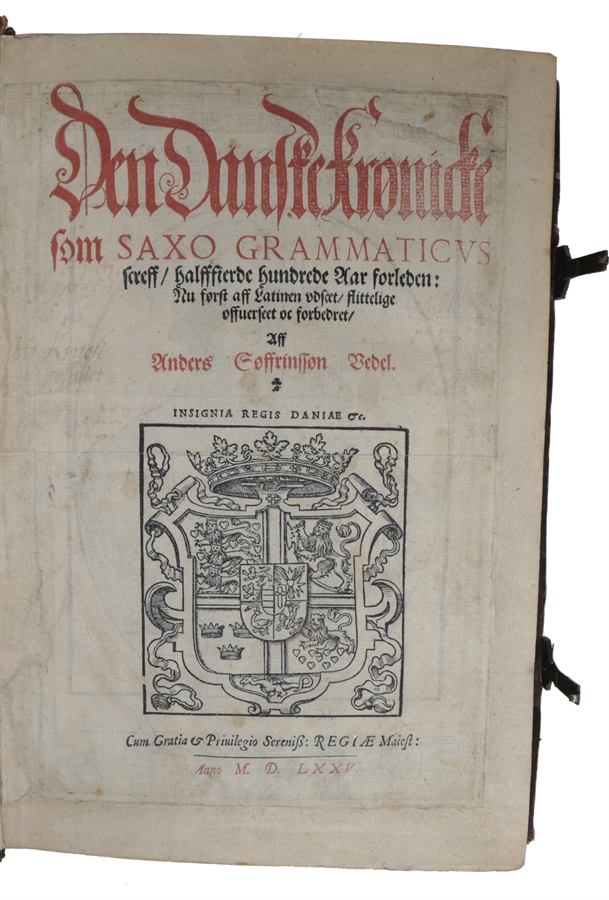 Den Danske Krønicke
som SAXO GRAMMATICVS
screff / halffierde hundrede Aar forleden:
Nu først aff Latinen vdsæt / flittelige
offuerseet oc forbedret /
Aff
Anders Søffrinssøn Vedel.
INSIGNIA REGIS DANIAE &c.
Cum Gratia & Priuilegio Sereniß: REGIÆ Maiest:
Anno M. D. LXXV.